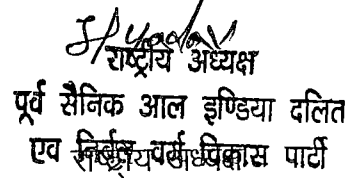 राष्ट्रीय अध्यक्ष
पूर्व सैनिक आल इण्डिया दलित
एव निर्बल वर्ग विकास पार्टी